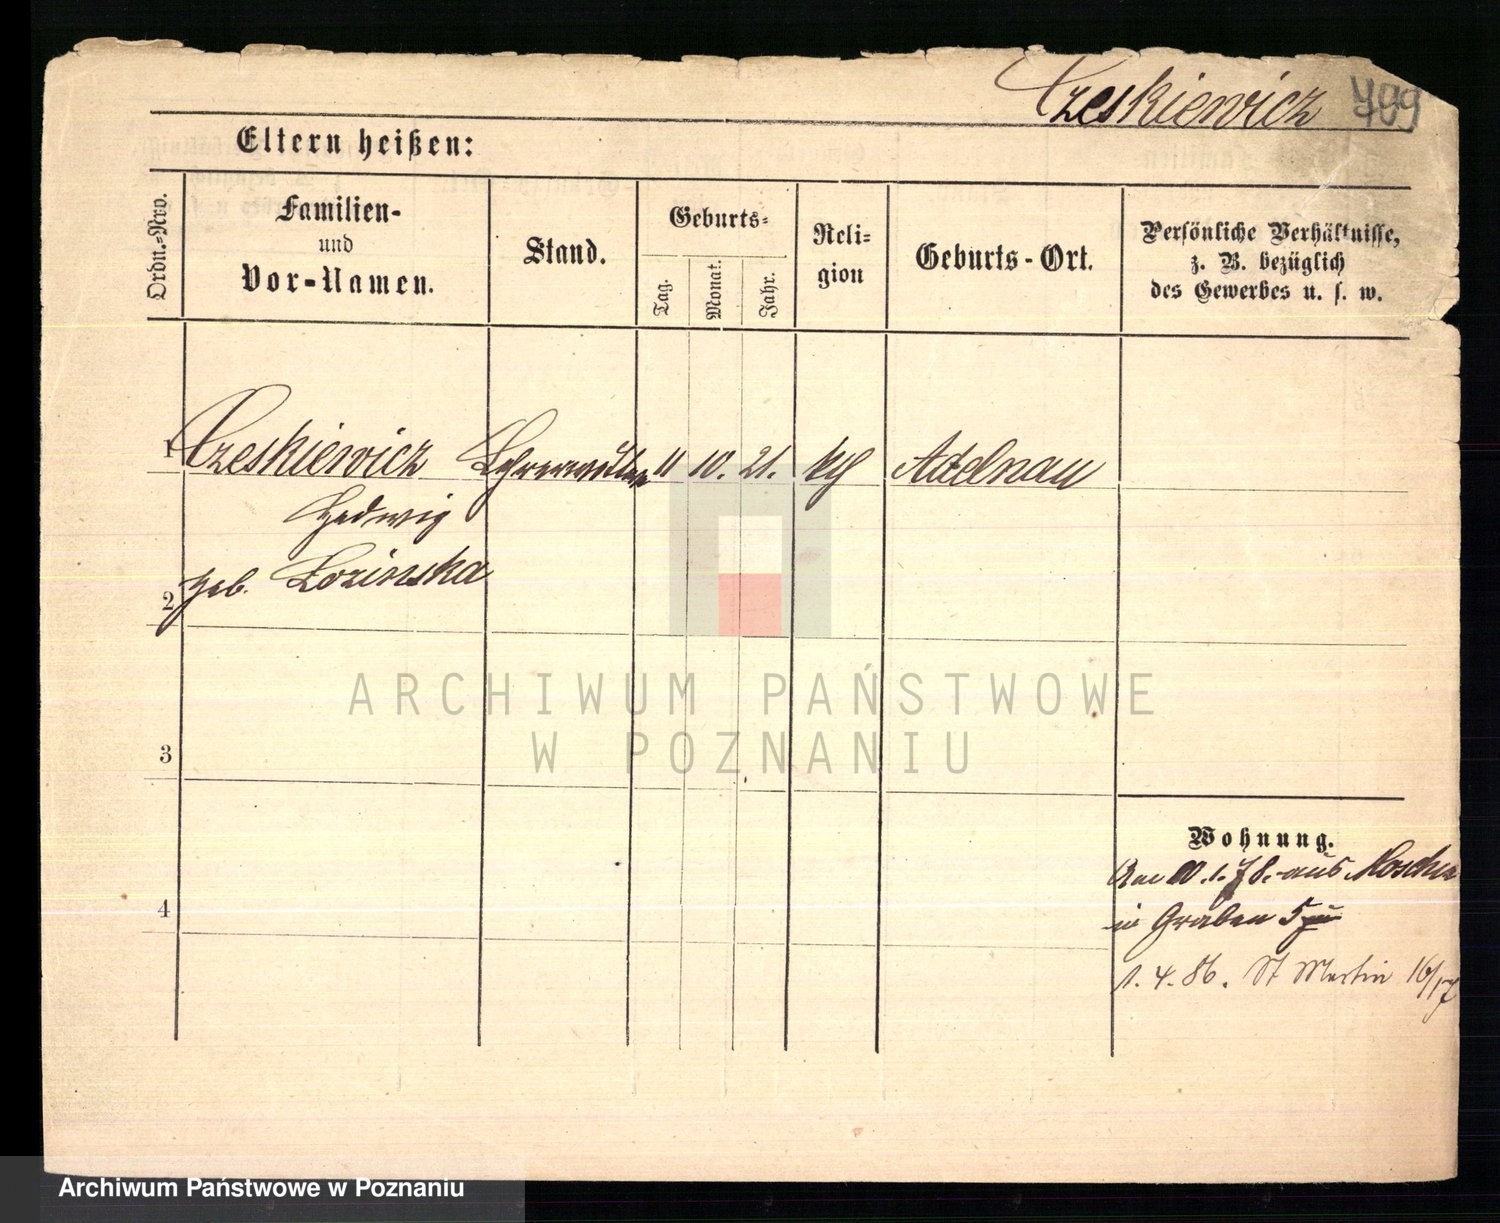 Czeskiewicz 799
Eltern heißen:
Ordn.-Nro.
Familien-
und
Vor-Namen.
Stand.
Geburts-
Tag.
Monat.
Jahr.
Reli-
gion
Geburts-Ort.
Persönliche Verhältnisse,
z. B. bezüglich
des Gewerbes u. s. w.
1 Czeskiewicz Lehrerwittwe 11 10. 21. kth Adelnau
Hedwig
geb. Lozinska
2
3
4
Wohnung.
10.1.78. aus Moschin
in Graben 5
1.4.86. St Martin 16/17
ARCHIWUM PAŃSTWOWE
W POZNANIU
Archiwum Państwowe w Poznaniu